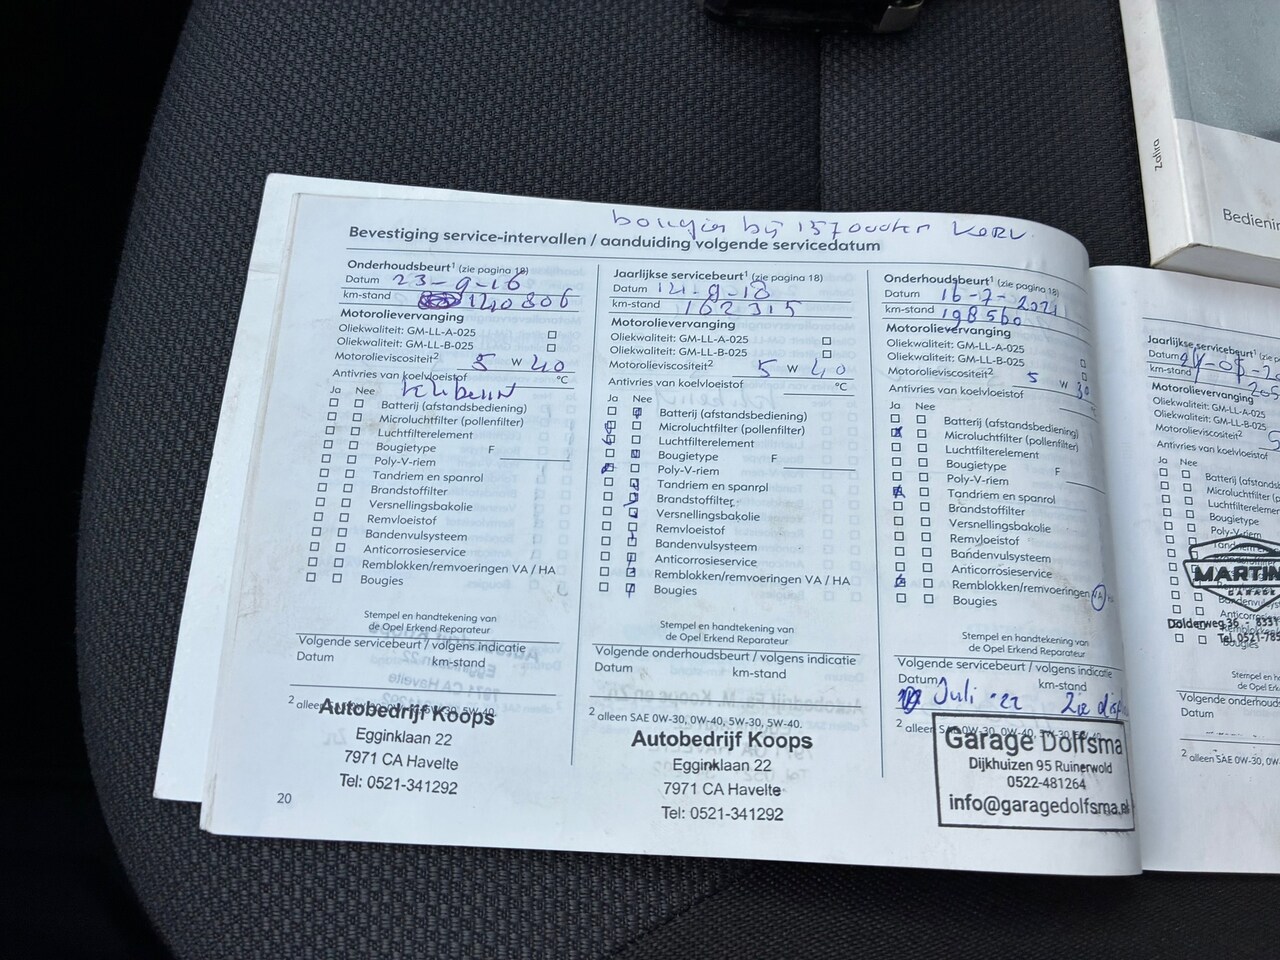 Zafira
Bedienin
bougies bij 157000km verv.
Bevestiging service-intervallen / aanduiding volgende servicedatum
Onderhoudsbeurt¹ (zie pagina 18)
Datum 23-9-16
km-stand 140806
Motorolievervanging
Oliekwaliteit: GM-LL-A-025
Oliekwaliteit: GM-LL-B-025
Motorolieviscositeit² 5 W 40
Antivries van koelvloeistof °C
Ja Nee
Batterij (afstandsbediening)
Microluchtfilter (pollenfilter)
Luchtfilterelement
Bougietype F
Poly-V-riem
Tandriem en spanrol
Brandstoffilter
Versnellingsbakolie
Remvloeistof
Bandenvulsysteem
Anticorrosieservice
Remblokken/remvoeringen VA / HA
Bougies
Stempel en handtekening van
de Opel Erkend Reparateur
Volgende servicebeurt / volgens indicatie
Datum km-stand
Autobedrijf Koops
Egginklaan 22
7971 CA Havelte
Tel: 0521-341292
20
Jaarlijkse servicebeurt¹ (zie pagina 18)
Datum 14-9-18
km-stand 162315
Motorolievervanging
Oliekwaliteit: GM-LL-A-025
Oliekwaliteit: GM-LL-B-025
Motorolieviscositeit² 5 W 40
Antivries van koelvloeistof °C
Ja Nee
Batterij (afstandsbediening)
Microluchtfilter (pollenfilter)
Luchtfilterelement
Bougietype F
Poly-V-riem
Tandriem en spanrol
Brandstoffilter
Versnellingsbakolie
Remvloeistof
Bandenvulsysteem
Anticorrosieservice
Remblokken/remvoeringen VA / HA
Bougies
Stempel en handtekening van
de Opel Erkend Reparateur
Volgende onderhoudsbeurt / volgens indicatie
Datum km-stand
² alleen SAE 0W-30, 0W-40, 5W-30, 5W-40.
Autobedrijf Koops
Egginklaan 22
7971 CA Havelte
Tel: 0521-341292
Onderhoudsbeurt¹ (zie pagina 18)
Datum 16-7-2021
km-stand 198560
Motorolievervanging
Oliekwaliteit: GM-LL-A-025
Oliekwaliteit: GM-LL-B-025
Motorolieviscositeit² 5 W 30
Antivries van koelvloeistof °C
Ja Nee
Batterij (afstandsbediening)
Microluchtfilter (pollenfilter)
Luchtfilterelement
Bougietype F
Poly-V-riem
Tandriem en spanrol
Brandstoffilter
Versnellingsbakolie
Remvloeistof
Bandenvulsysteem
Anticorrosieservice
Remblokken/remvoeringen VA / HA
Bougies
Stempel en handtekening van
de Opel Erkend Reparateur
Volgende servicebeurt / volgens indicatie
Datum km-stand
Juli '22 Zie
² alleen
Garage Dolfsma
Dijkhuizen 95 Ruinerwold
0522-481264
info@garagedolfsma.
Jaarlijkse servicebeurt¹ (zie
Datum
km-stand
Motorolievervanging
Oliekwaliteit: GM-LL-A-025
Oliekwaliteit: GM-LL-B-025
Motorolieviscositeit²
Antivries van koelvloeistof
Ja Nee
Batterij (afstands
Microluchtfilter
Luchtfilterelement
Bougietype
Poly-V-riem
MARTIN
GARAGE
Dolderweg 36 - 8331
Tel. 0521-785
Bougies
Stempel en ha
de Opel Erken
Volgende onderhouds
Datum
² alleen SAE 0W-30, 0W